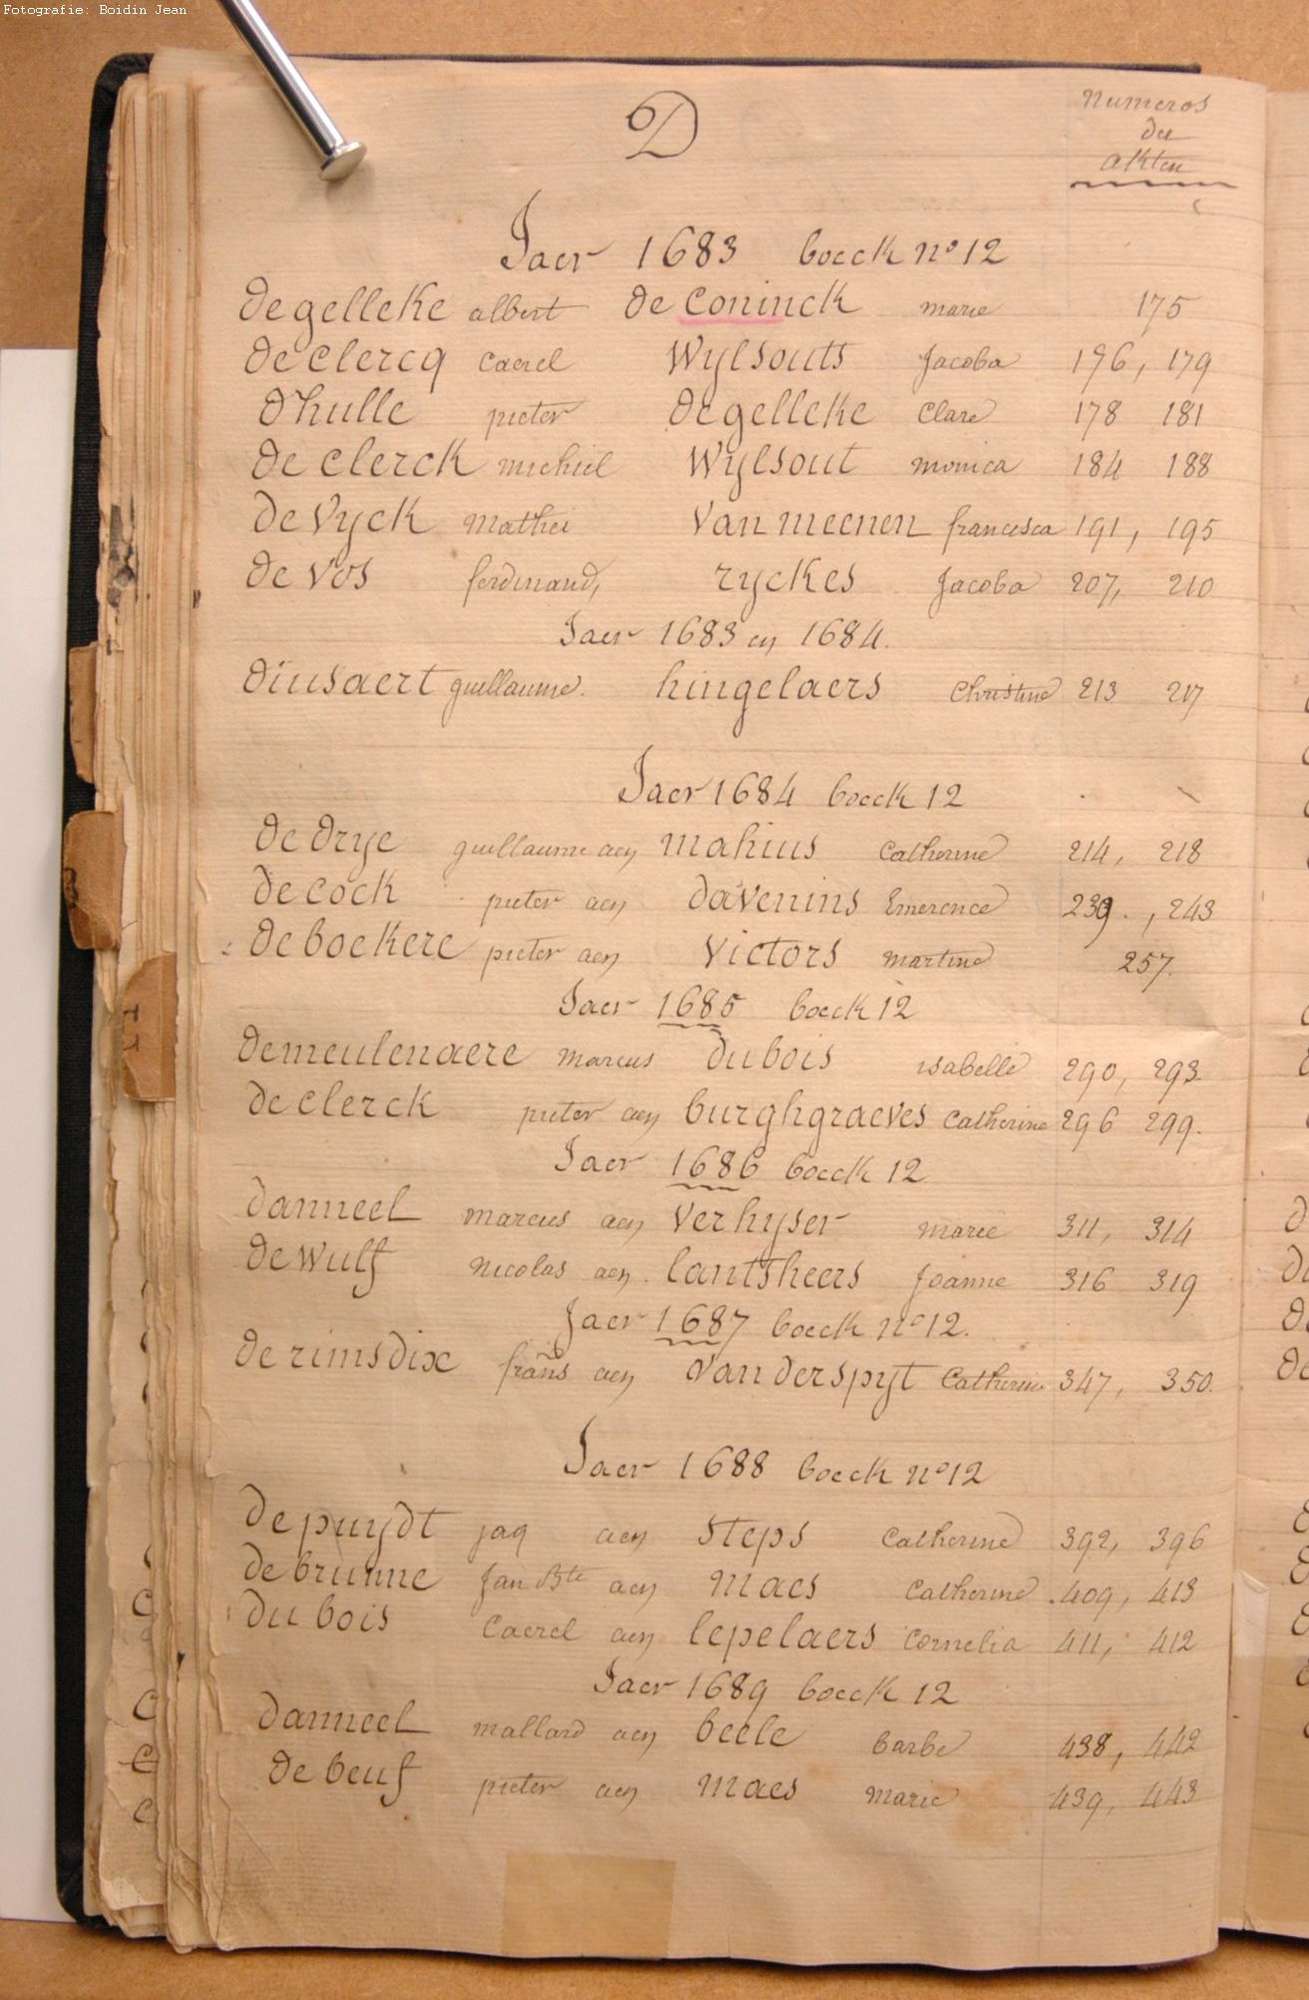 Fotografie: Boidin Jean
D
Numeros
der
akten
Jaer 1683 boeck no 12
degelleke albert de Coninck marie 175
de clercq Caerel Wylsouts Jacoba 176, 179
d'hulle pieter degelleke Clare 178 181
de clerck michiel Wylsout monica 184 188
de Vyck Mathei Van meenen francesca 191, 195
de Vos ferdinand, ryckes Jacoba 207, 210
Jaer 1683 en 1684.
guillaume. hingelaers Christine 213 217
Jaer 1684 boeck 12
de drye guillaume aen mahius Catherine 214, 218
de cock pieter aen davenins Emerence 239. , 243
de boekere pieter aen Victors martine 257.
Jaer 1685 boeck 12
demeulenaere marcus du bois isabelle 290, 293
de clerck pieter aen burghgraeves Catherine 296 299.
Jaer 1686 boeck 12
danneel marcus aen Verhyser marie 311, 314
de Wulf Nicolas aen. lantsheers Joanne 316 319
Jaer 1687 boeck No 12.
de rimsdix frans aen Van derspyt Catherine 347, 350.
Jaer 1688 boeck no 12
depuydt jaq aen Steps Catherine 392, 396
de brunne Jan Bte aen Maes Catherine 409, 413
du bois Caerel aen lepelaers Cornelia 411, 412
Jaer 1689 boeck 12
danneel mallard aen beele barbe 438, 442
de beuf pieter aen Maes Marie 439, 443